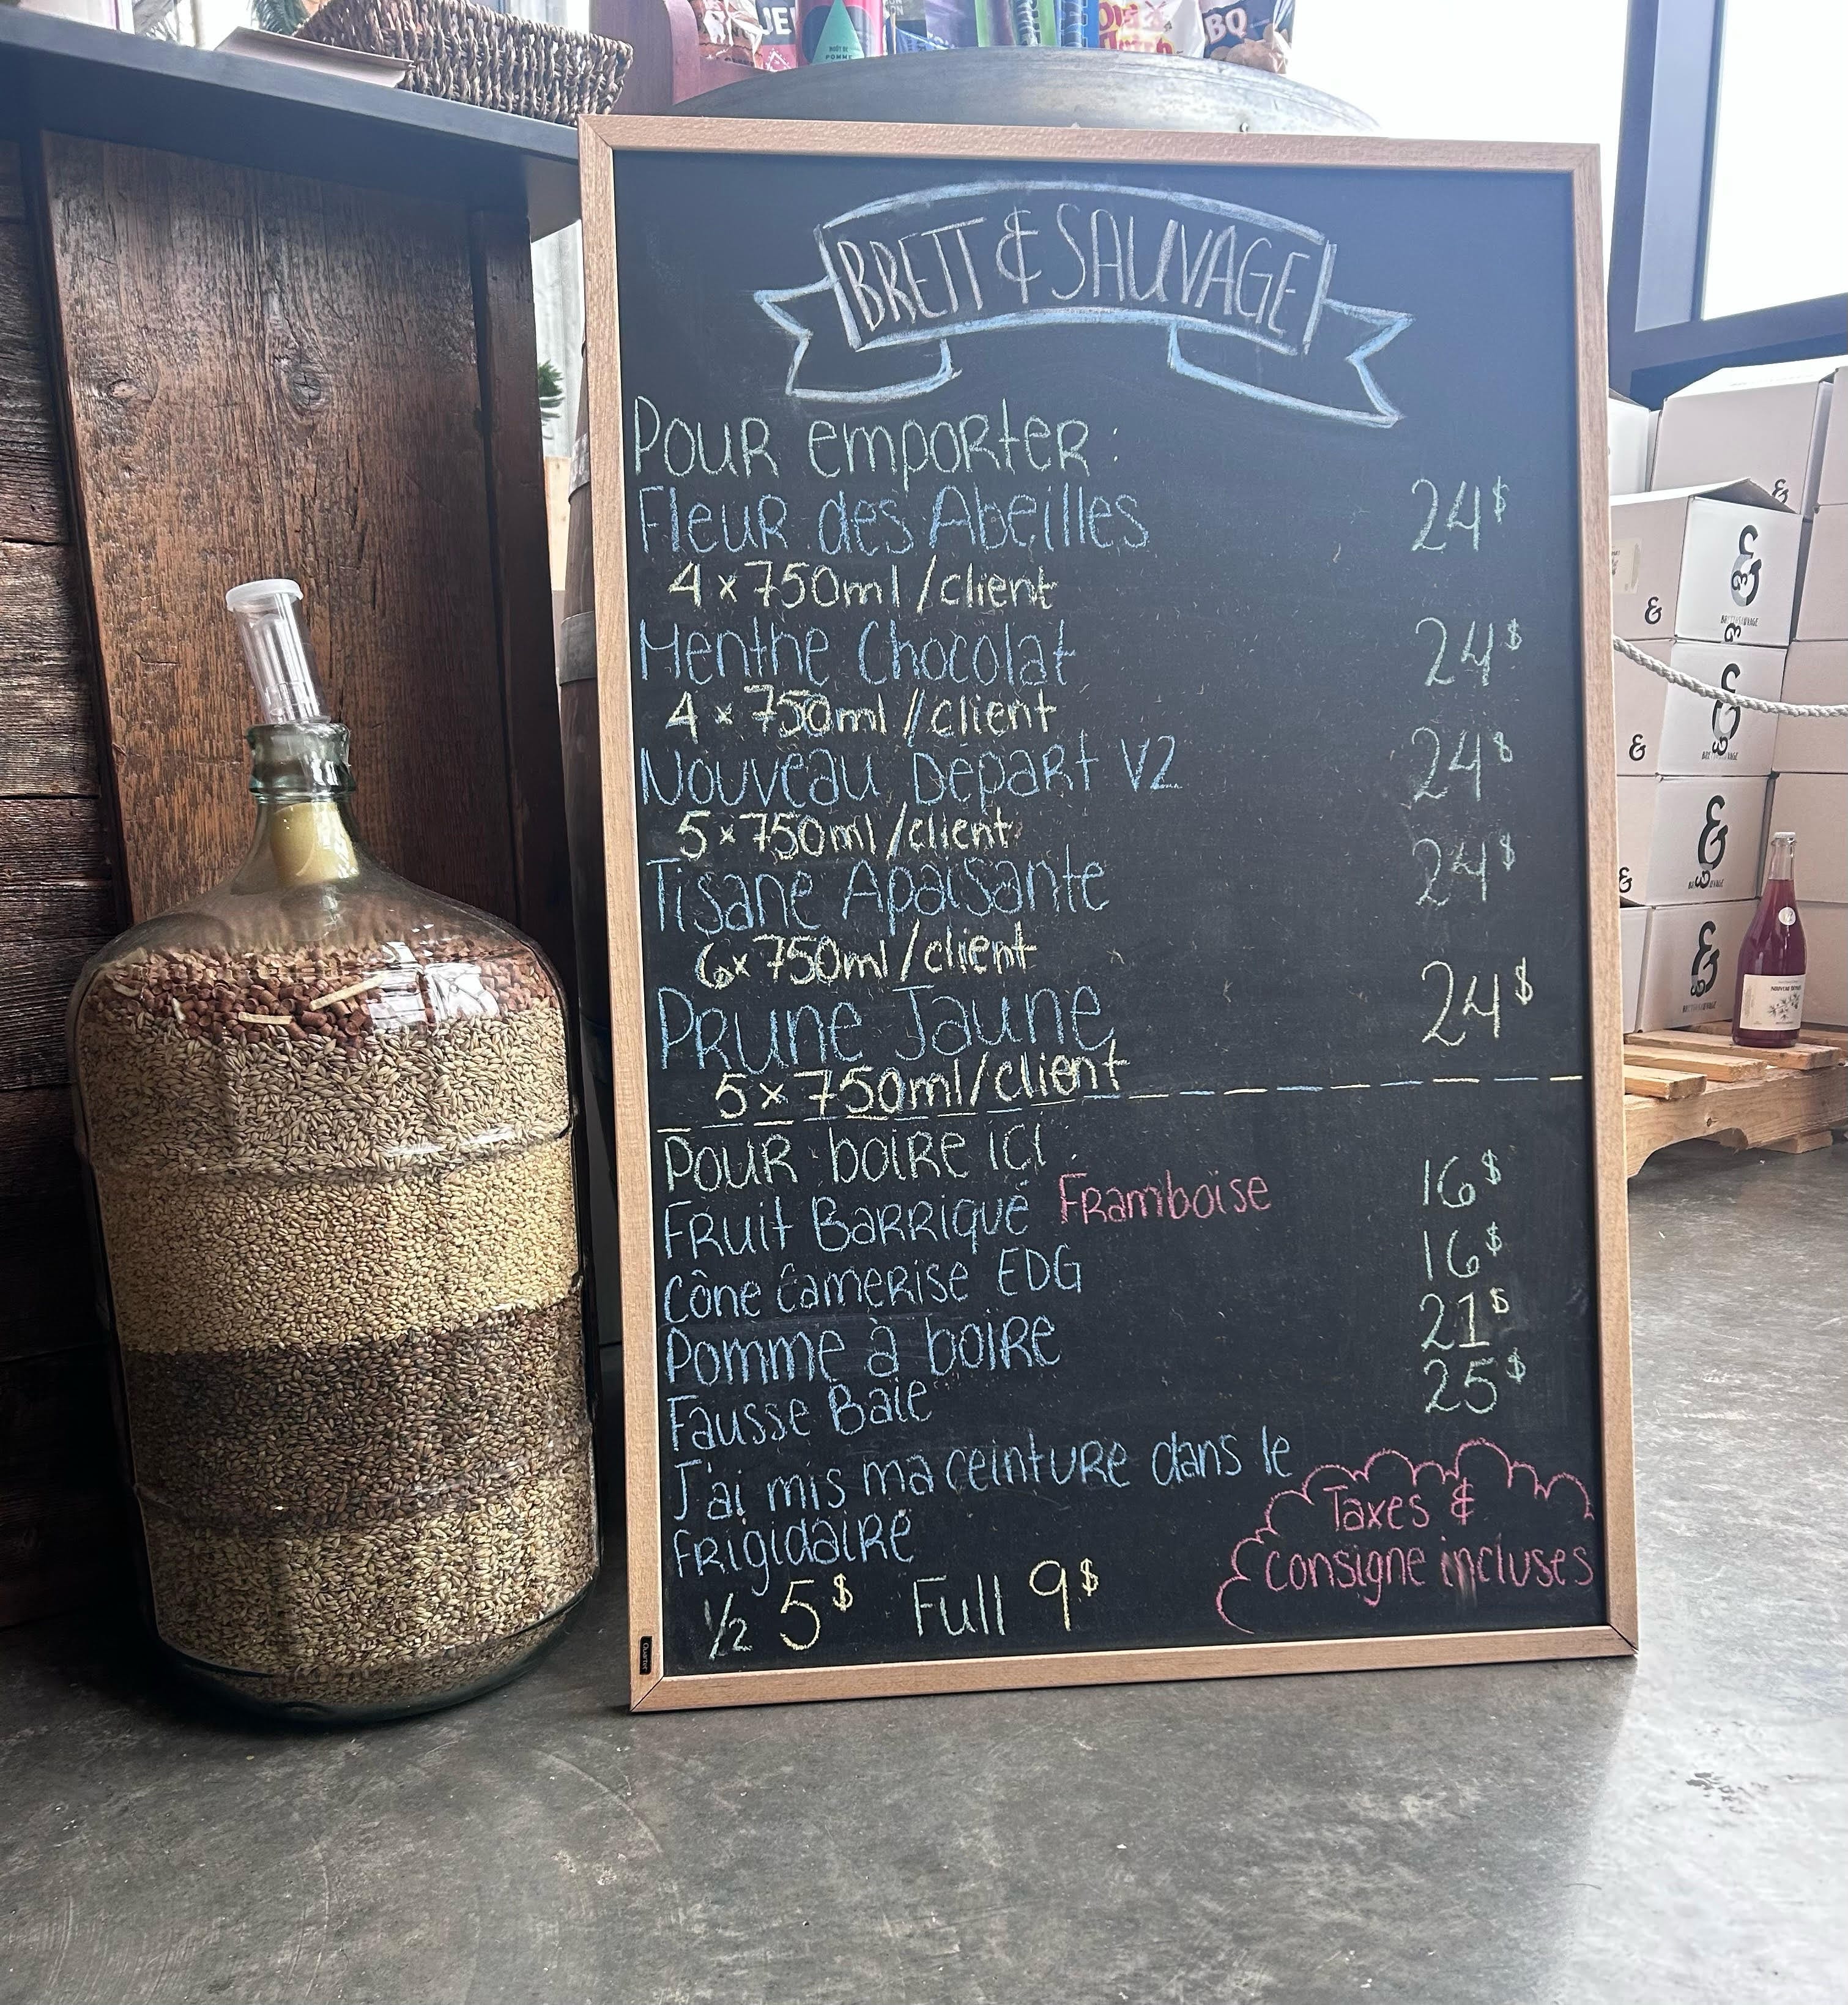 BRETT & SAUVAGE
Pour emporter :
Fleur des Abeilles 24$
4x750ml/client
Menthe Chocolat 24$
4x750ml/client
Nouveau Départ V2 24$
5x750ml/client
Tisane Apaisante 24$
6x750ml/client
Prune Jaune 24$
5x750ml/client
Pour boire ici :
Fruit Barrique Framboise 16$
Cône Camerise EDG 16$
Pomme à boire 21$
Fausse Baie 25$
J'ai mis ma ceinture dans le
Frigidaire
1/2 5$ Full 9$
Taxes &
consigne incluses
Quartet
POMME
BQ
&
&
&
&
&
&
&
&